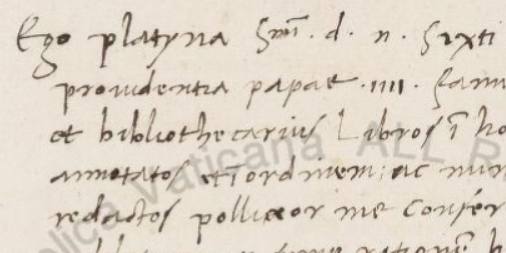 Ego platyna Smi. d. n. Sixti
prouidentia papae .iiii. famu
et bibliothecarius Libros ī ho
annotatos et ī ordinem: ac num
redactos polliceor me conser
rationē h